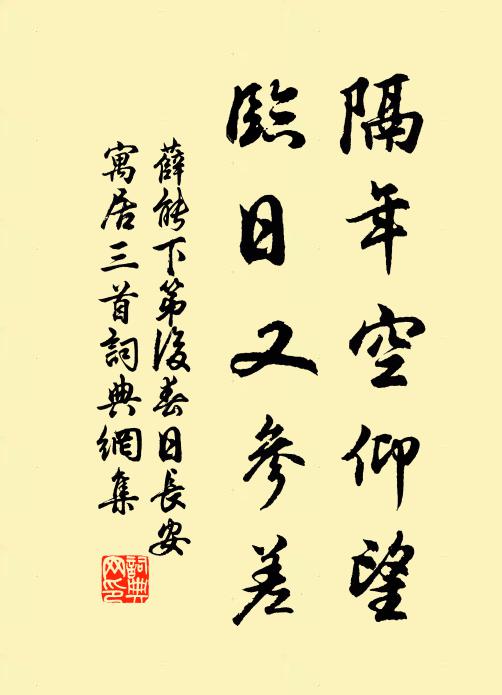 隔年空仰望
臨日又參差
薛能下第後春日長安
寓居三首詞典網集
詞典網印